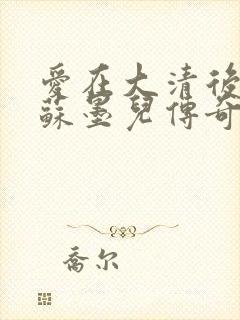 愛在大清後
蘇墨兒傳奇
喬尔